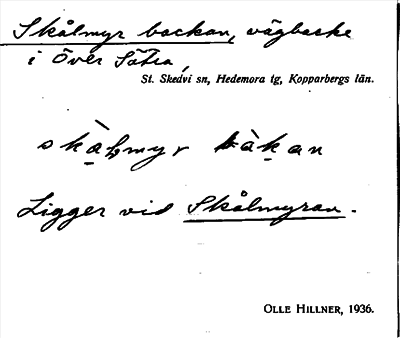 Skålmyr backan, vägbacke
i Över Sätra,
St. Skedvi sn, Hedemora tg, Kopparbergs län.
bàkan
Ligger vid Skålmyran.
OLLE HILLNER, 1936.